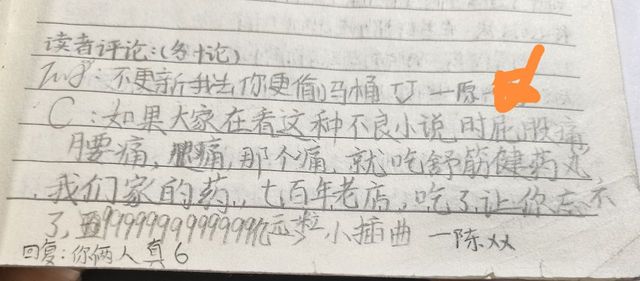 读者评论:(多讨论)
:不更新我去你更偷马桶 一原
C:如果大家在看这种不良小说,时屁股痛,
腰痛,腿痛,那个痛,就吃舒筋健药丸,
我们家的药,七百年老店,吃了让你忘不
了,9999999999999亿元 小插曲 一陈xx
回复:你俩人真6